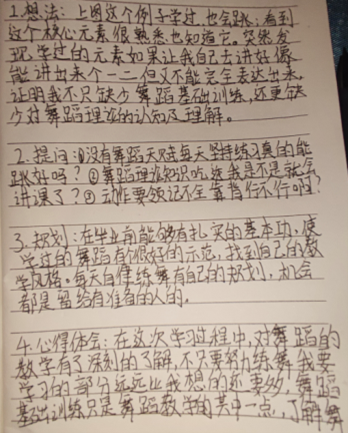 1.想法：上图这个例子学过，也会跳；看到
这个核心元素很熟悉也知道它。突然发
现学过的元素如果让我自己去讲好像
能讲出来个一二但又不能完全表达出来，
证明我不只缺少舞蹈基础训练，还更缺
少对舞蹈理论的认知及理解。
2.提问：①没有舞蹈天赋每天坚持练习真的能
跳好吗？②舞蹈理论知识吃透我是不是就会
讲课了？③动作要领记不全靠背行不行啊？
3.规划：在毕业前能够有扎实的基本功，使
学过的舞蹈有个很好的示范，找到自己的教
学风格。每天自律练舞有自己的规划，机会
都是留给有准备的人的。
4.心得体会：在这次学习过程中，对舞蹈的
教学有了深刻的了解，不只要努力练舞我要
学习的部分远远比我想的还要多，舞蹈
基础训练只是舞蹈教学的其中一点，了解舞